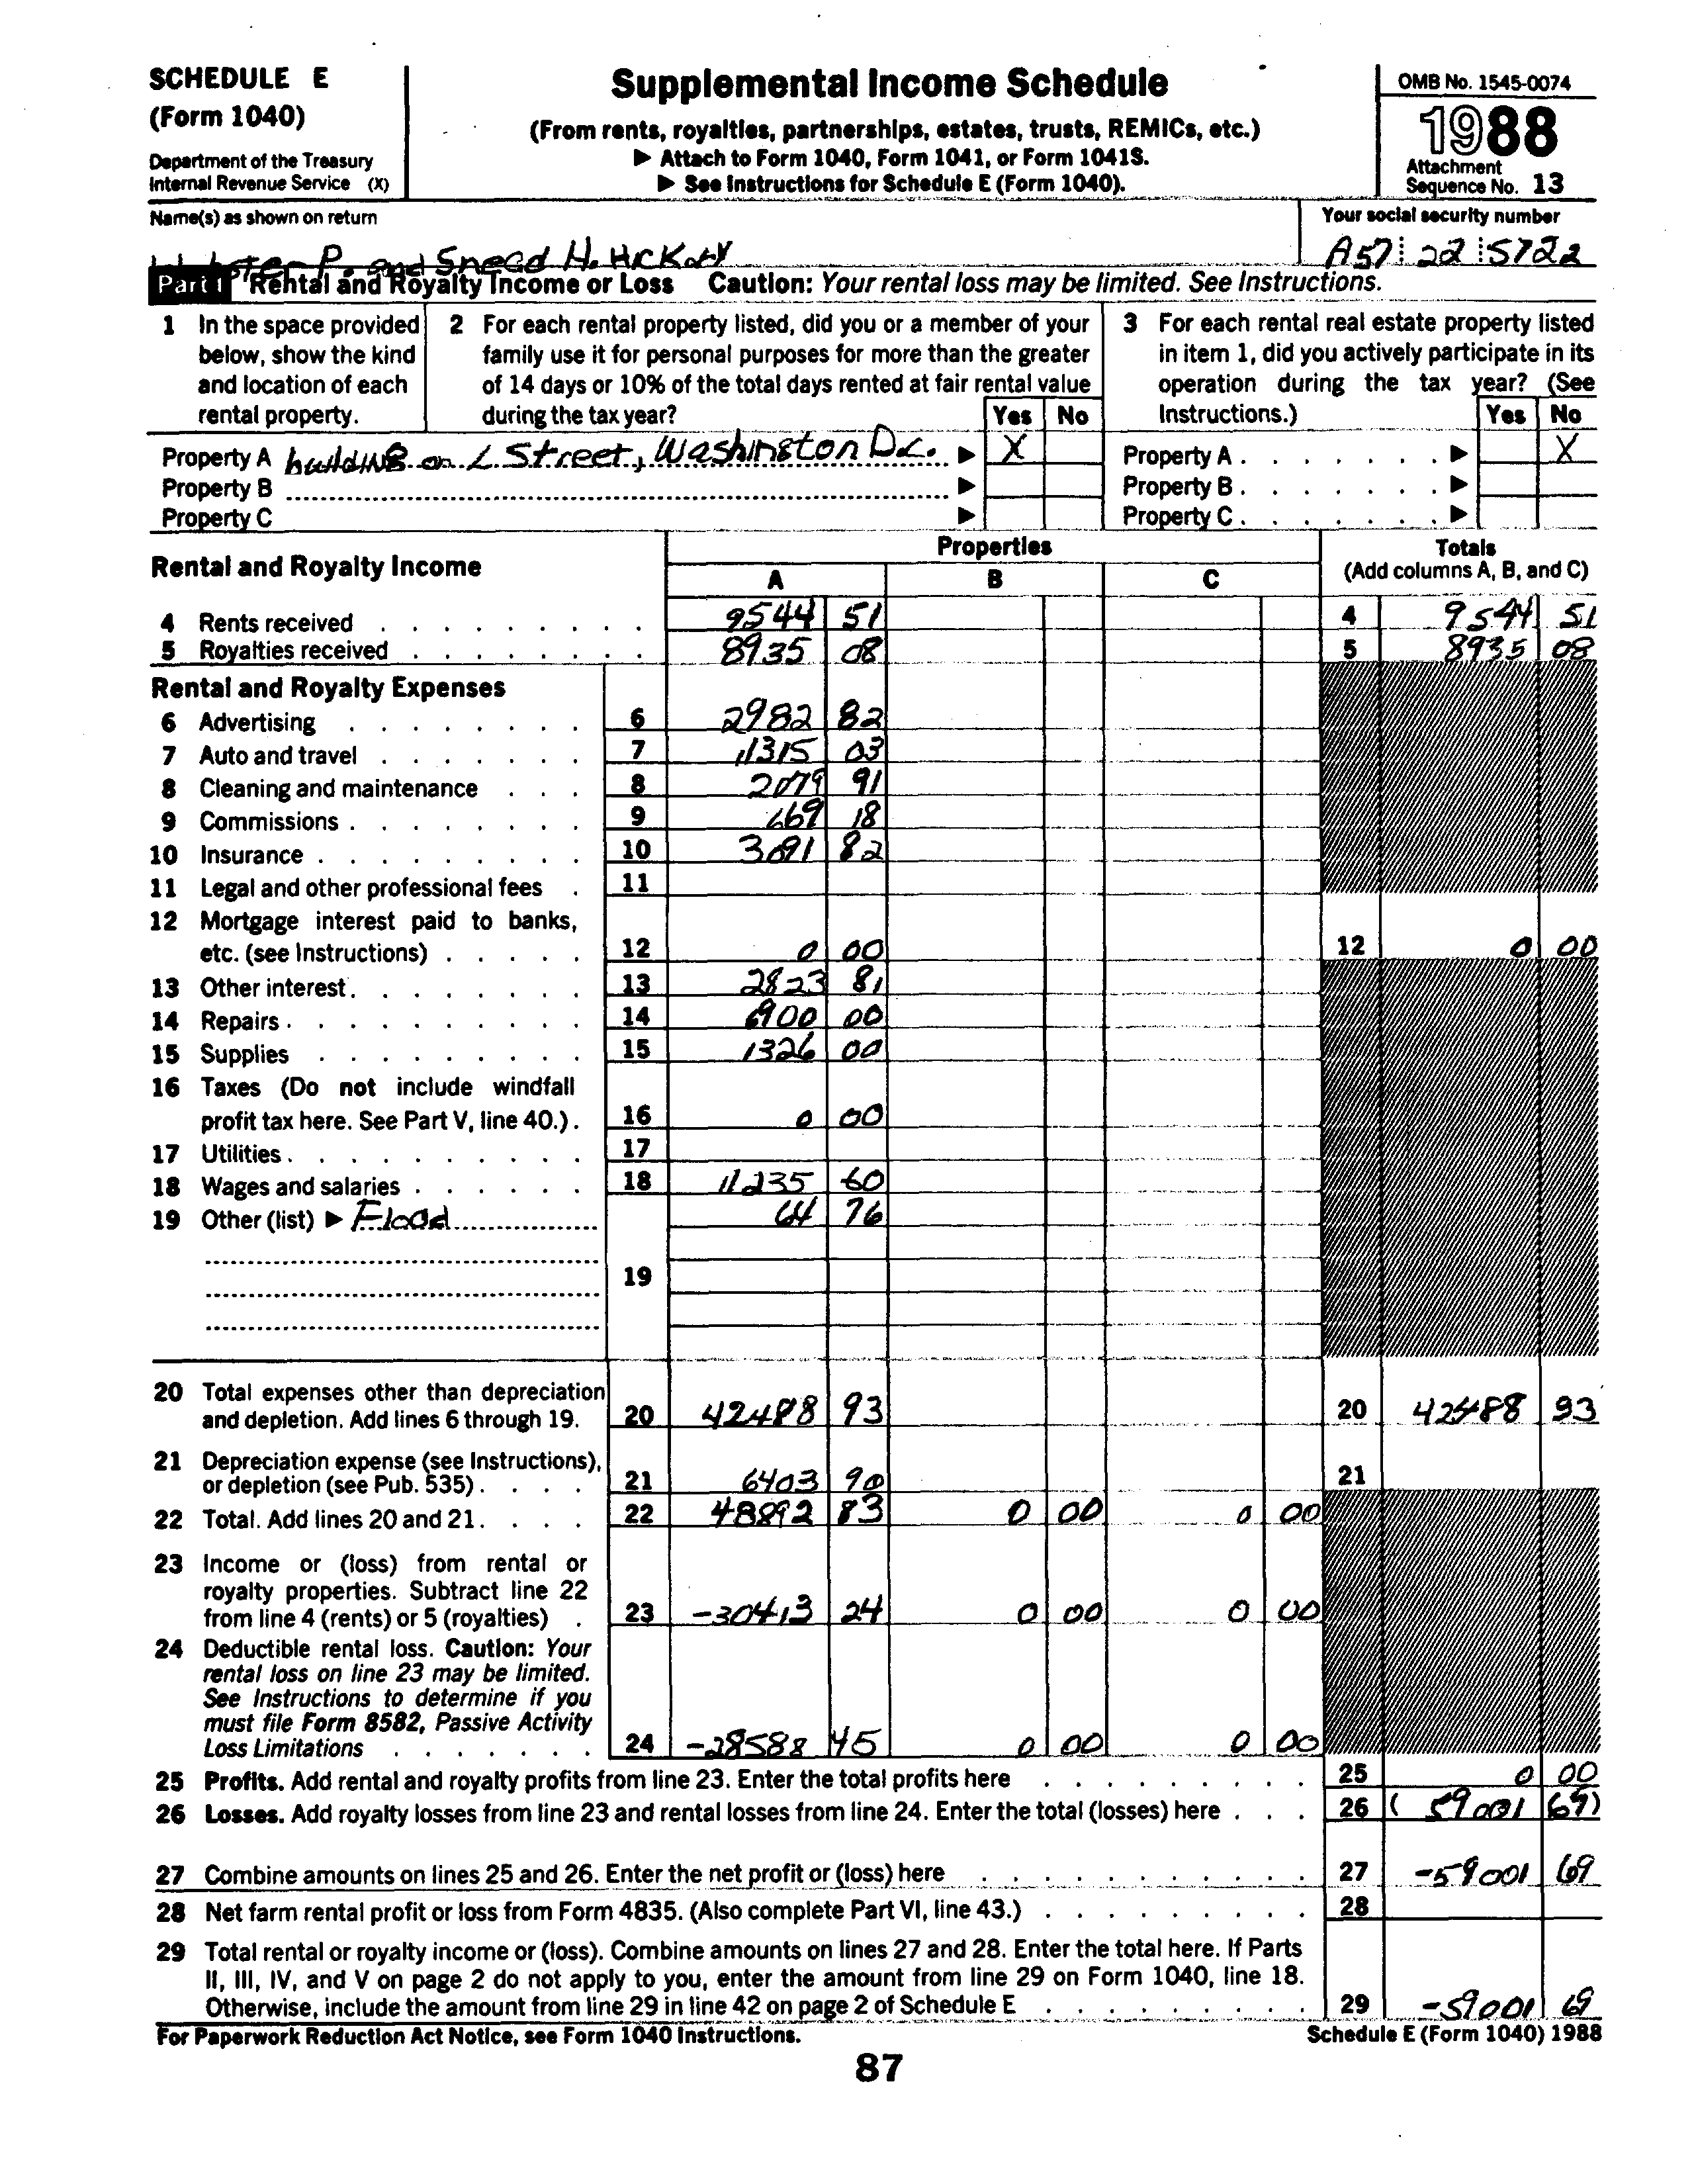 SCHEDULE E
(Form 1040)
Department of the Treasury
Internal Revenue Service (X)
Supplemental Income Schedule
(From rents, royalties, partnerships, estates, trusts, REMICs, etc.)
▶ Attach to Form 1040, Form 1041, or Form 1041S.
▶ See Instructions for Schedule E (Form 1040).
OMB No. 1545-0074
1988
Attachment
Sequence No. 13
Name(s) as shown on return
P. and Snead H. Hickory
Your social security number
A57 22 5722
Part I Rental and Royalty Income or Loss Caution: Your rental loss may be limited. See Instructions.
1 In the space provided below, show the kind and location of each rental property.
2 For each rental property listed, did you or a member of your family use it for personal purposes for more than the greater of 14 days or 10% of the total days rented at fair rental value during the tax year? Yes No
3 For each rental real estate property listed in item 1, did you actively participate in its operation during the tax year? (See Instructions.) Yes No
Property A building on L Street, Washington D.C. ▶ X
Property A ▶ X
Property B ▶
Property B ▶
Property C ▶
Property C ▶
Rental and Royalty Income
Properties
A B C
Totals
(Add columns A, B, and C)
4 Rents received 9544 51 4 9544 51
5 Royalties received 8935 08 5 8935 08
Rental and Royalty Expenses
6 Advertising 6 2982 82
7 Auto and travel 7 11315 03
8 Cleaning and maintenance 8 2079 91
9 Commissions 9 669 18
10 Insurance 10 3091 82
11 Legal and other professional fees 11
12 Mortgage interest paid to banks, etc. (see Instructions) 12 0 00 12 0 00
13 Other interest 13 2823 81
14 Repairs 14 6900 00
15 Supplies 15 1326 00
16 Taxes (Do not include windfall profit tax here. See Part V, line 40.) 16 0 00
17 Utilities 17
18 Wages and salaries 18 11235 60
19 Other (list) ▶ Flood 64 76
19
20 Total expenses other than depreciation and depletion. Add lines 6 through 19. 20 42488 93 20 42488 93
21 Depreciation expense (see Instructions), or depletion (see Pub. 535) 21 6403 90 21
22 Total. Add lines 20 and 21 22 48892 83 0 00 0 00
23 Income or (loss) from rental or royalty properties. Subtract line 22 from line 4 (rents) or 5 (royalties) 23 -30413 24 0 00 0 00
24 Deductible rental loss. Caution: Your rental loss on line 23 may be limited. See Instructions to determine if you must file Form 8582, Passive Activity Loss Limitations 24 -28588 45 0 00 0 00
25 Profits. Add rental and royalty profits from line 23. Enter the total profits here 25 0 00
26 Losses. Add royalty losses from line 23 and rental losses from line 24. Enter the total (losses) here 26 ( 59001 69)
27 Combine amounts on lines 25 and 26. Enter the net profit or (loss) here 27 -59001 69
28 Net farm rental profit or loss from Form 4835. (Also complete Part VI, line 43.) 28
29 Total rental or royalty income or (loss). Combine amounts on lines 27 and 28. Enter the total here. If Parts II, III, IV, and V on page 2 do not apply to you, enter the amount from line 29 on Form 1040, line 18. Otherwise, include the amount from line 29 in line 42 on page 2 of Schedule E 29 -59001 69
For Paperwork Reduction Act Notice, see Form 1040 Instructions.
Schedule E (Form 1040) 1988
87